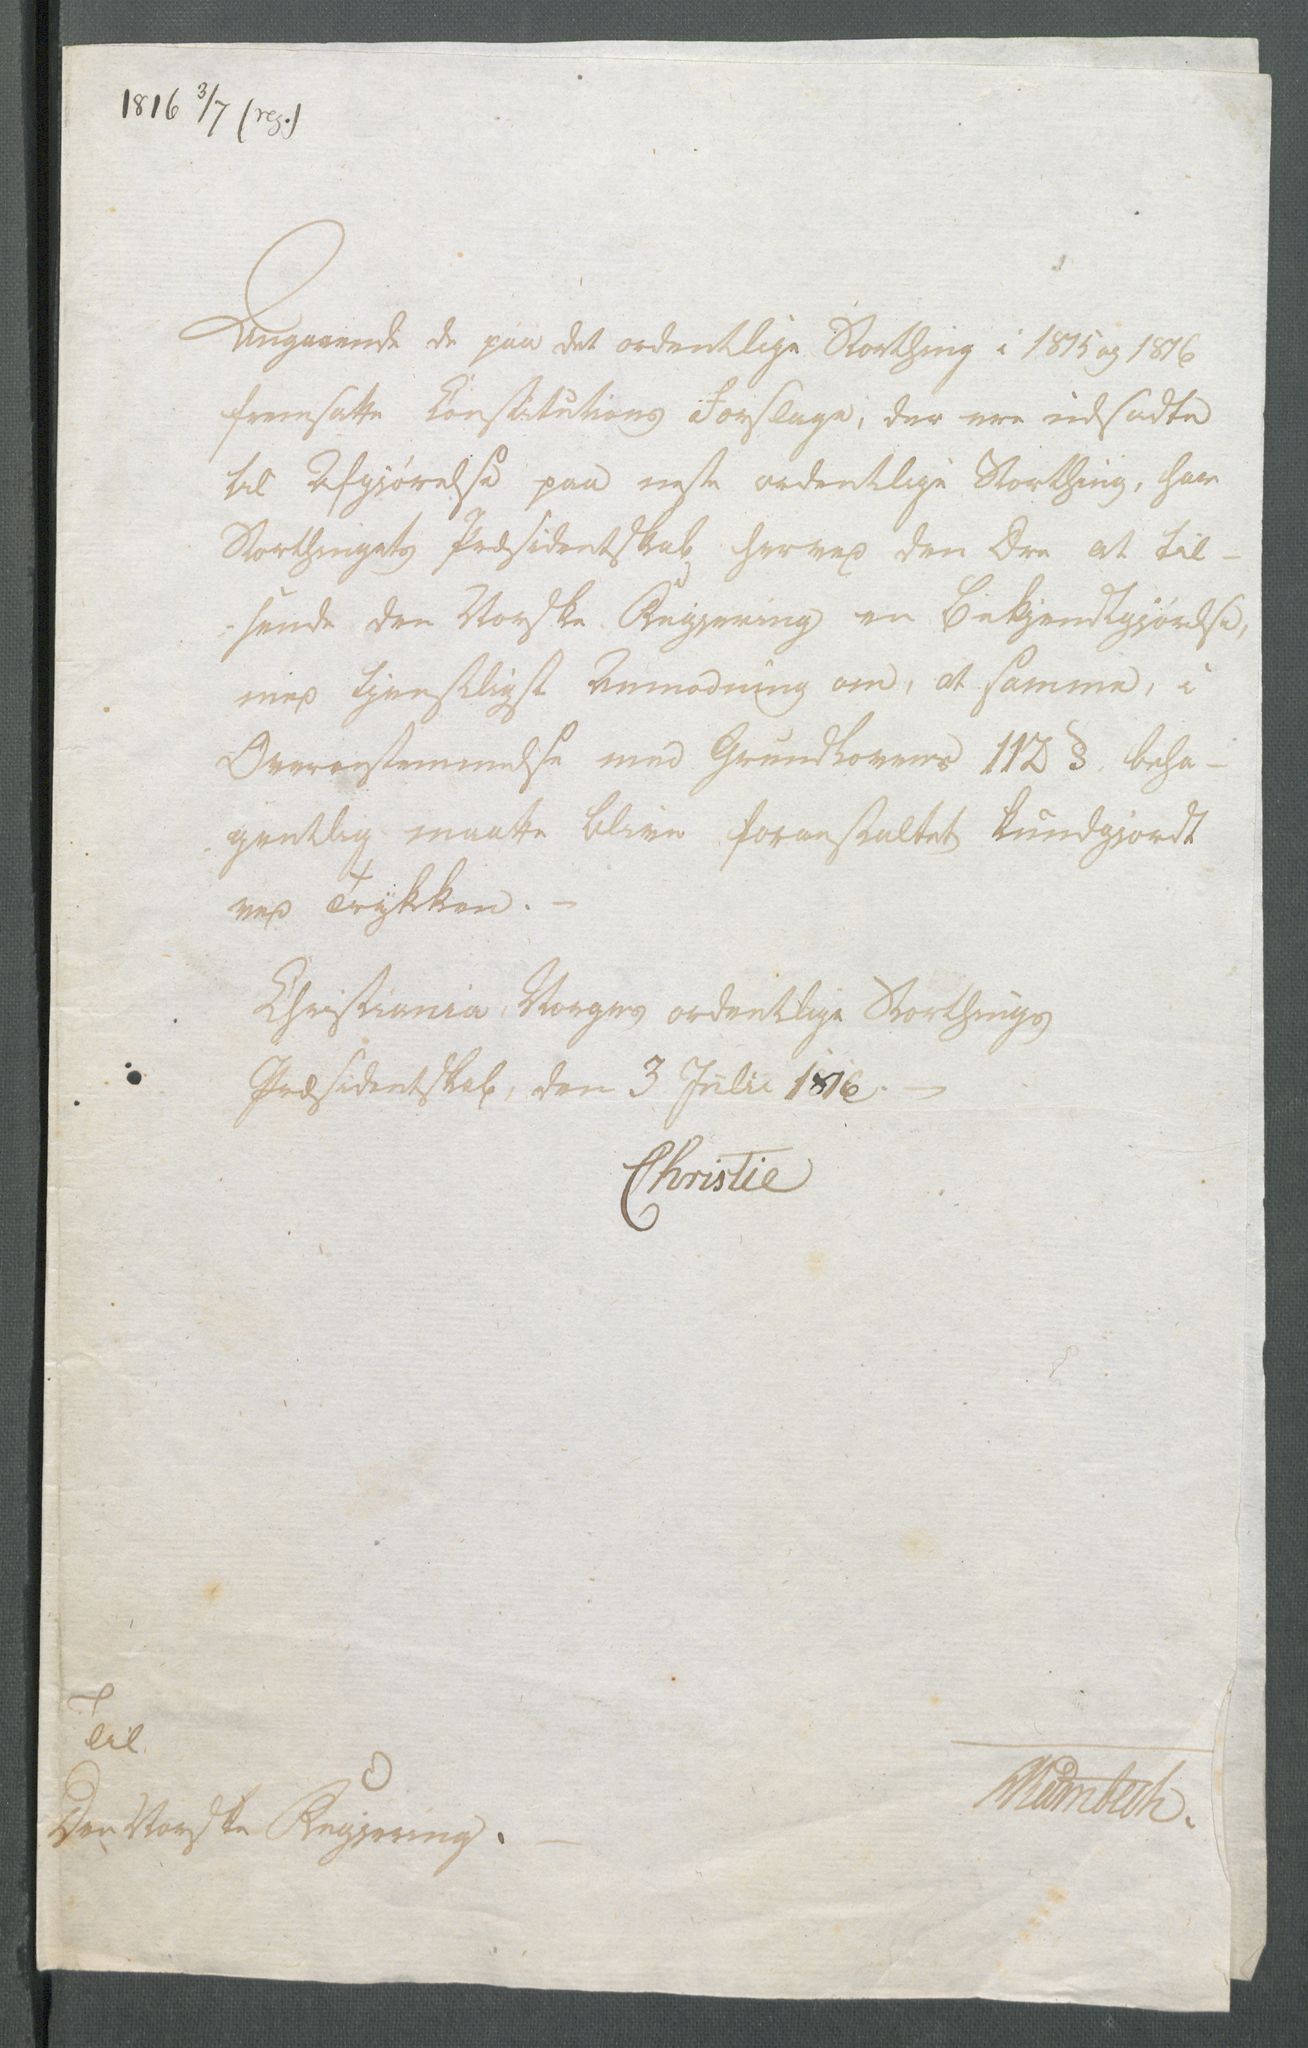 1816 3/7 (reg.)
Angaaende de paa det ordentlige Storthing i 1815 og 1816
fremsatte Constitutions Forslage, der ere udsadte
til Afgjørelse paa neste ordentlige Storthing, har
Storthingets Præsidentskab herved den Ære at til-
sende den Norske Regjering en Bekjendtgjørelse,
med tjenstligst Anmodning om, at samme, i
Overenstemmelse med Grundlovens 112 §. beha-
gentlig maatte blive foranstaltet kundgjordt
ved Trykken. -
Christiania, Norges ordentlige Storthings
Præsidentskab, den 3 Julii 1816. -
Christie
Til
Den Norske Regjering. -